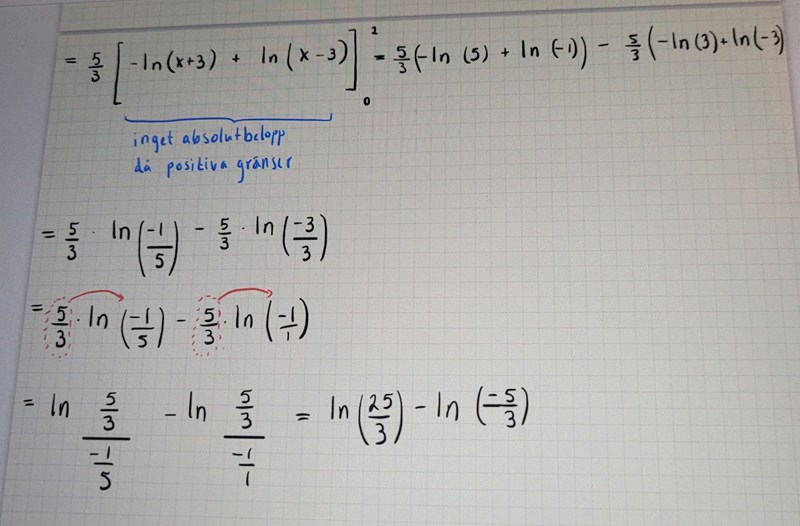 = 5/3 [ -ln(x+3) + ln(x-3) ]₀² = 5/3 (-ln (5) + ln (-1)) - 5/3 (-ln(3) + ln(-3)
inget absolutbelopp
då positiva gränser
= 5/3 · ln(-1/5) - 5/3 · ln(-3/3)
= 5/3 · ln(-1/5) - 5/3 · ln(-1/1)
= ln (5/3)/(-1/5) - ln (5/3)/(-1/1) = ln(25/3) - ln(-5/3)